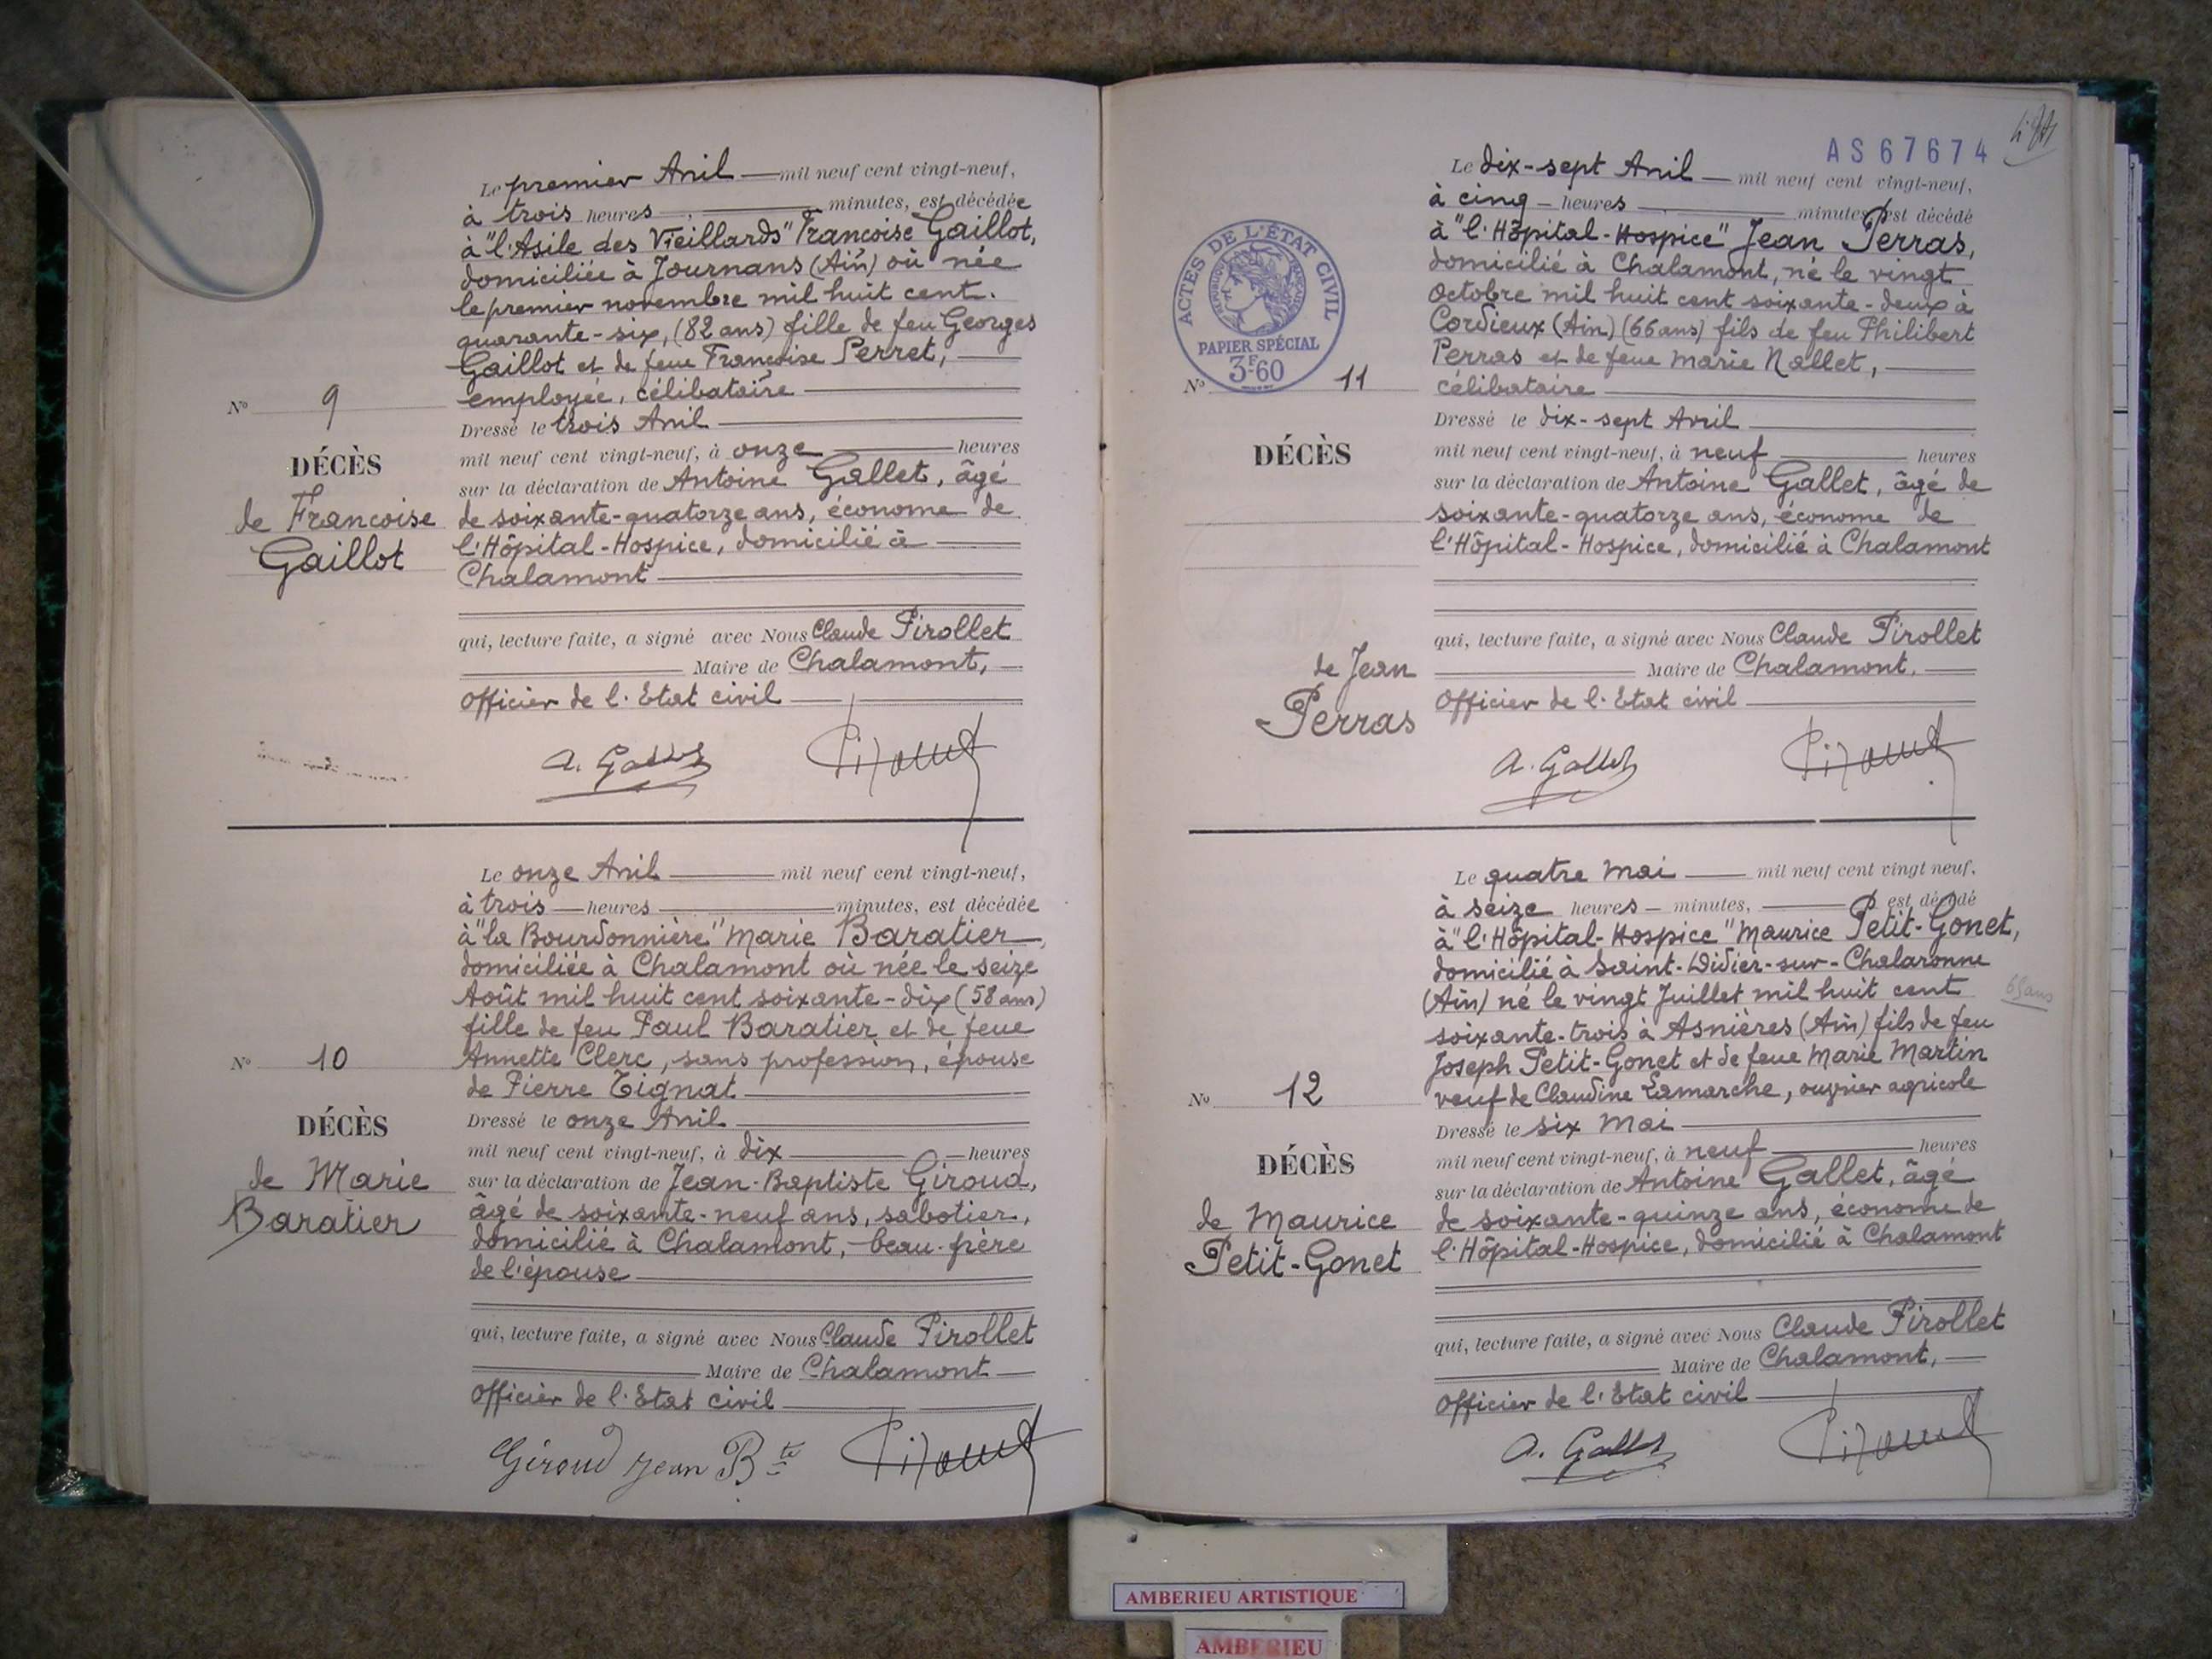 Le premier Avril mil neuf cent vingt-neuf,
à trois heures minutes, est décédée
à "l'Asile des Vieillards" Françoise Gaillot,
domiciliée à Journans (Ain) où née
le premier novembre mil huit cent
quarante-six, (82 ans) fille de feu Georges
Gaillot et de feue Françoise Perret,
employée, célibataire
Dressé le trois Avril
mil neuf cent vingt-neuf, à onze heures
sur la déclaration de Antoine Gallet, âgé
de soixante-quatorze ans, économe de
l'Hôpital-Hospice, domicilié à
Chalamont
qui, lecture faite, a signé avec Nous Claude Pirollet
Maire de Chalamont,
Officier de l'Etat civil
A. Gallet
N° 9
DÉCÈS
de Françoise
Gaillot
Le onze Avril mil neuf cent vingt-neuf,
à trois heures minutes, est décédée
à "la Bourdonnière" Marie Baratier,
domiciliée à Chalamont où née le seize
Août mil huit cent soixante-dix (58 ans)
fille de feu Paul Baratier et de feue
Annette Clerc, sans profession, épouse
de Pierre Tignat
Dressé le onze Avril
mil neuf cent vingt-neuf, à dix heures
sur la déclaration de Jean-Baptiste Giroud,
âgé de soixante-neuf ans, sabotier,
domicilié à Chalamont, beau-frère
de l'épouse
qui, lecture faite, a signé avec Nous Claude Pirollet
Maire de Chalamont
Officier de l'Etat civil
Giroud Jean Bte
N° 10
DÉCÈS
de Marie
Baratier
AS67674
Le dix-sept Avril mil neuf cent vingt-neuf,
à cinq heures minutes, est décédé
à "l'Hôpital-Hospice" Jean Perras,
domicilié à Chalamont, né le vingt
Octobre mil huit cent soixante-deux à
Cordieux (Ain) (66 ans) fils de feu Philibert
Perras et de feue Marie Nallet,
célibataire
Dressé le dix-sept Avril
mil neuf cent vingt-neuf, à neuf heures
sur la déclaration de Antoine Gallet, âgé de
soixante-quatorze ans, économe de
l'Hôpital-Hospice, domicilié à Chalamont
qui, lecture faite, a signé avec Nous Claude Pirollet
Maire de Chalamont,
Officier de l'Etat civil
A. Gallet
ACTES DE L'ÉTAT CIVIL
RÉPUBLIQUE FRANÇAISE
PAPIER SPÉCIAL
3F60
N° 11
DÉCÈS
de Jean
Perras
Le quatre Mai mil neuf cent vingt neuf,
à seize heures minutes, est décédé
à "l'Hôpital-Hospice" Maurice Petit-Gonet,
domicilié à Saint-Didier-sur-Chalaronne
(Ain) né le vingt Juillet mil huit cent
soixante-trois à Asnières (Ain) fils de feu
Joseph Petit-Gonet et de feue Marie Martin
veuf de Claudine Lamarche, ouvrier agricole
65 ans
Dressé le six Mai
mil neuf cent vingt-neuf, à neuf heures
sur la déclaration de Antoine Gallet, âgé
de soixante-quinze ans, économe de
l'Hôpital-Hospice, domicilié à Chalamont
qui, lecture faite, a signé avec Nous Claude Pirollet
Maire de Chalamont,
Officier de l'Etat civil
A. Gallet
N° 12
DÉCÈS
de Maurice
Petit-Gonet
AMBERIEU ARTISTIQUE
AMBERIEU